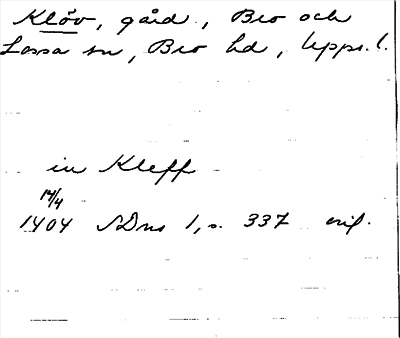 Klöv, gård., Bro och
Lossa sn, Bro hd, Upps. l.
in Kleff
14/4
1404 SDns 1, s. 337 orig.